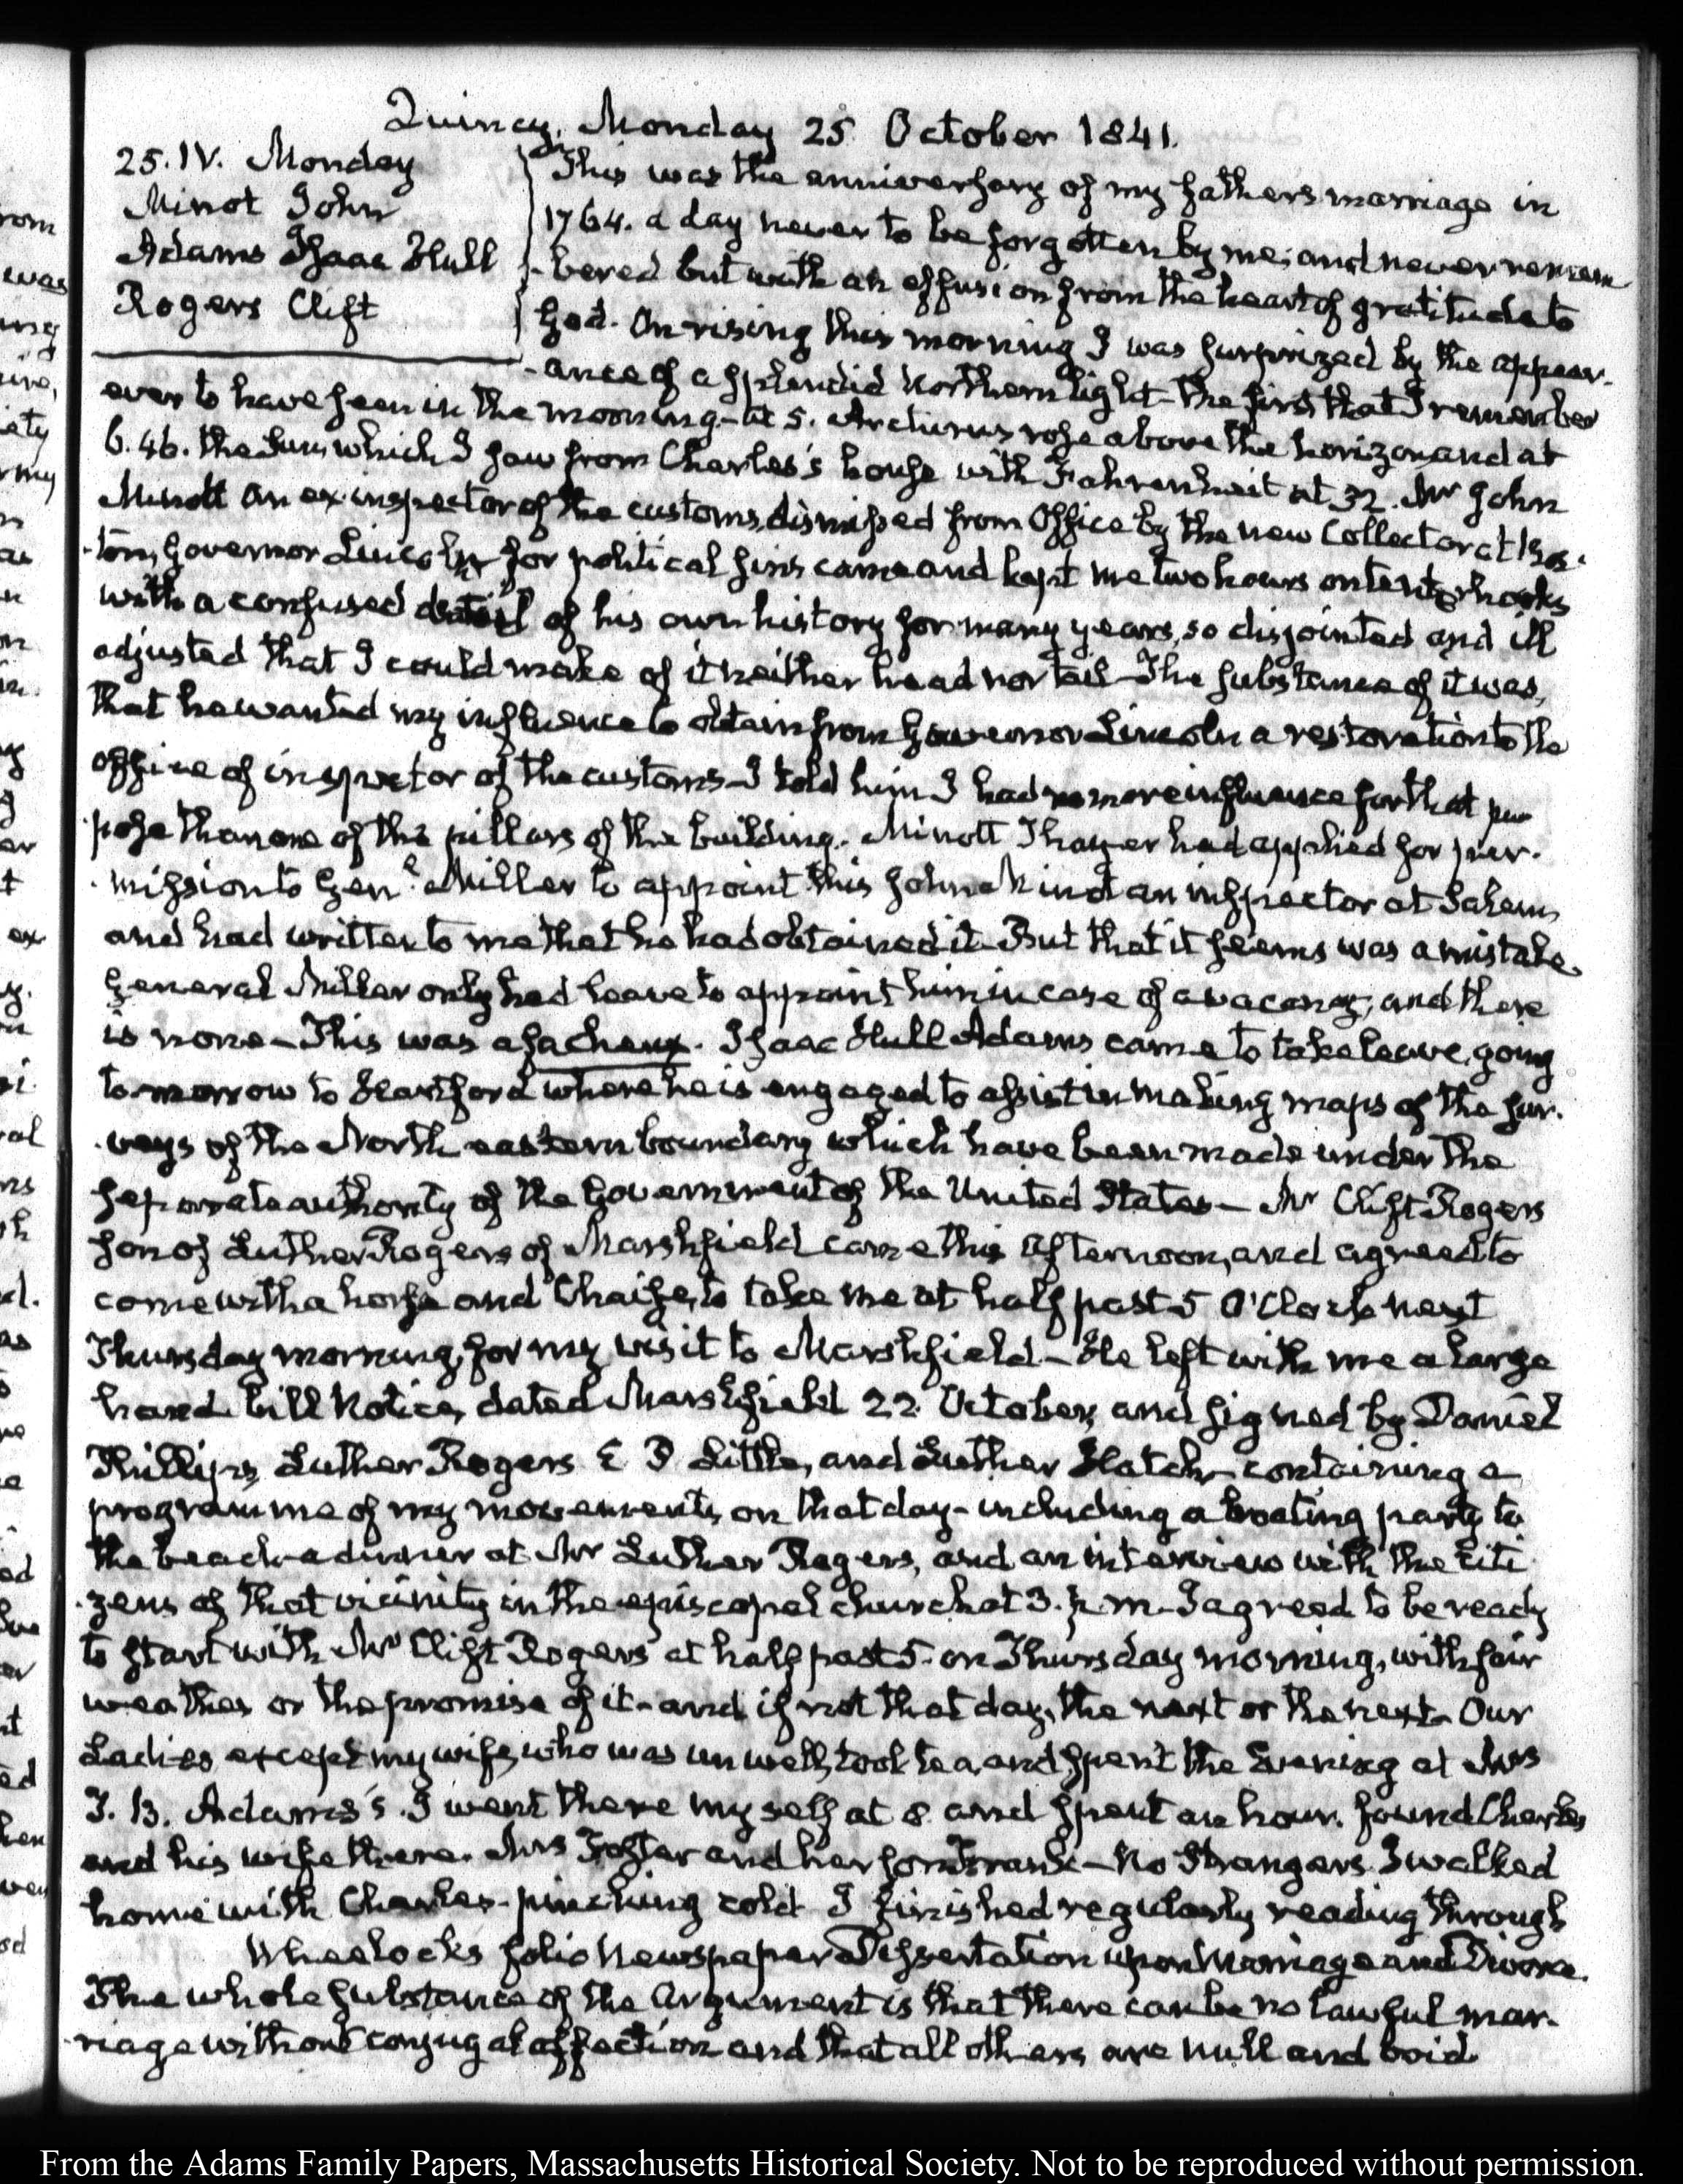 Quincy, Monday 25 October 1841.
25. IV. Monday
Minot John
Adams Isaac Hull
Rogers Clift
This was the anniversary of my fathers marriage in
1764. a day never to be forgotten by me; and never remem
-bered but with an effusion from the heart of gratitude to
God. On rising this morning I was surprized by the appear-
-ance of a splendid Northern light- the first that I remember
ever to have seen in the morning- at 5. Arcturus rose above the horizon and at
6. 46. the Sun, which I saw from Charles's house with Fahrenheit at 32. Mr John
Minott an ex-inspector of the customs, dismissed from Office by the new Collector at Bos-
-ton, Governor Lincoln for political sins came and kept me two hours on tenterhooks
with a confused detail of his own history for many years, so disjointed and ill
adjusted that I could make of it neither head nor tail- The substance of it was,
that he wanted my influence to obtain from Governor Lincoln a restoration to the
office of inspector of the customs- I told him I had no more influence for that pur
-pose than one of the pillars of the building. Minott Thayer had applied for per-
-mission to Genl. Miller to appoint this John Minot an inspector at Salem,
and had written to me that he had obtained it- But that it seems was a mistake
General Miller only had leave to appoint him in case of a vacancy; and there
is none- This was a facheux. Isaac Hull Adams came to take leave, going
to-morrow to Hartford where he is engaged to assist in making maps of the sur-
-veys of the North eastern boundary which have been made under the
separate authority of the Government of the United States- Mr Clift Rogers
son of Luther Rogers of Marshfield came this afternoon, and agreed to
come with a horse and Chaise, to take me at half past 5 O'Clock next
Thursday morning, for my visit to Marshfield- He left with me a large
hand-bill Notice, dated Marshfield 22. October, and signed by Daniel
Phillips, Luther Rogers E P Little, and Luther Hatch- containing a
programme of my movements on that day- including a boating party to
the beach- a dinner at Mr Luther Rogers, and an interview with the citi
-zens of that vicinity in the episcopal church at 3. p.m. I agreed to be ready
to start with Mr Clift Rogers at half past 5. on Thursday morning, with fair
weather or the promise of it- and if not that day, the next or the next- Our
Ladies except my wife, who was unwell, took tea, and spent the Evening at Mrs
T. B. Adams's. I went there myself at 8. and spent an hour. found Charles
and his wife there. Mrs Foster and her son Frank- No Strangers. I walked
home with Charles- pinching cold I finished regularly reading through
Wheelocks folio Newspaper Dissertation upon Marriage and Divorce.
The whole substance of the Argument is that there can be no lawful mar-
-riage without conjugal affection and that all others are null and void
From the Adams Family Papers, Massachusetts Historical Society. Not to be reproduced without permission.